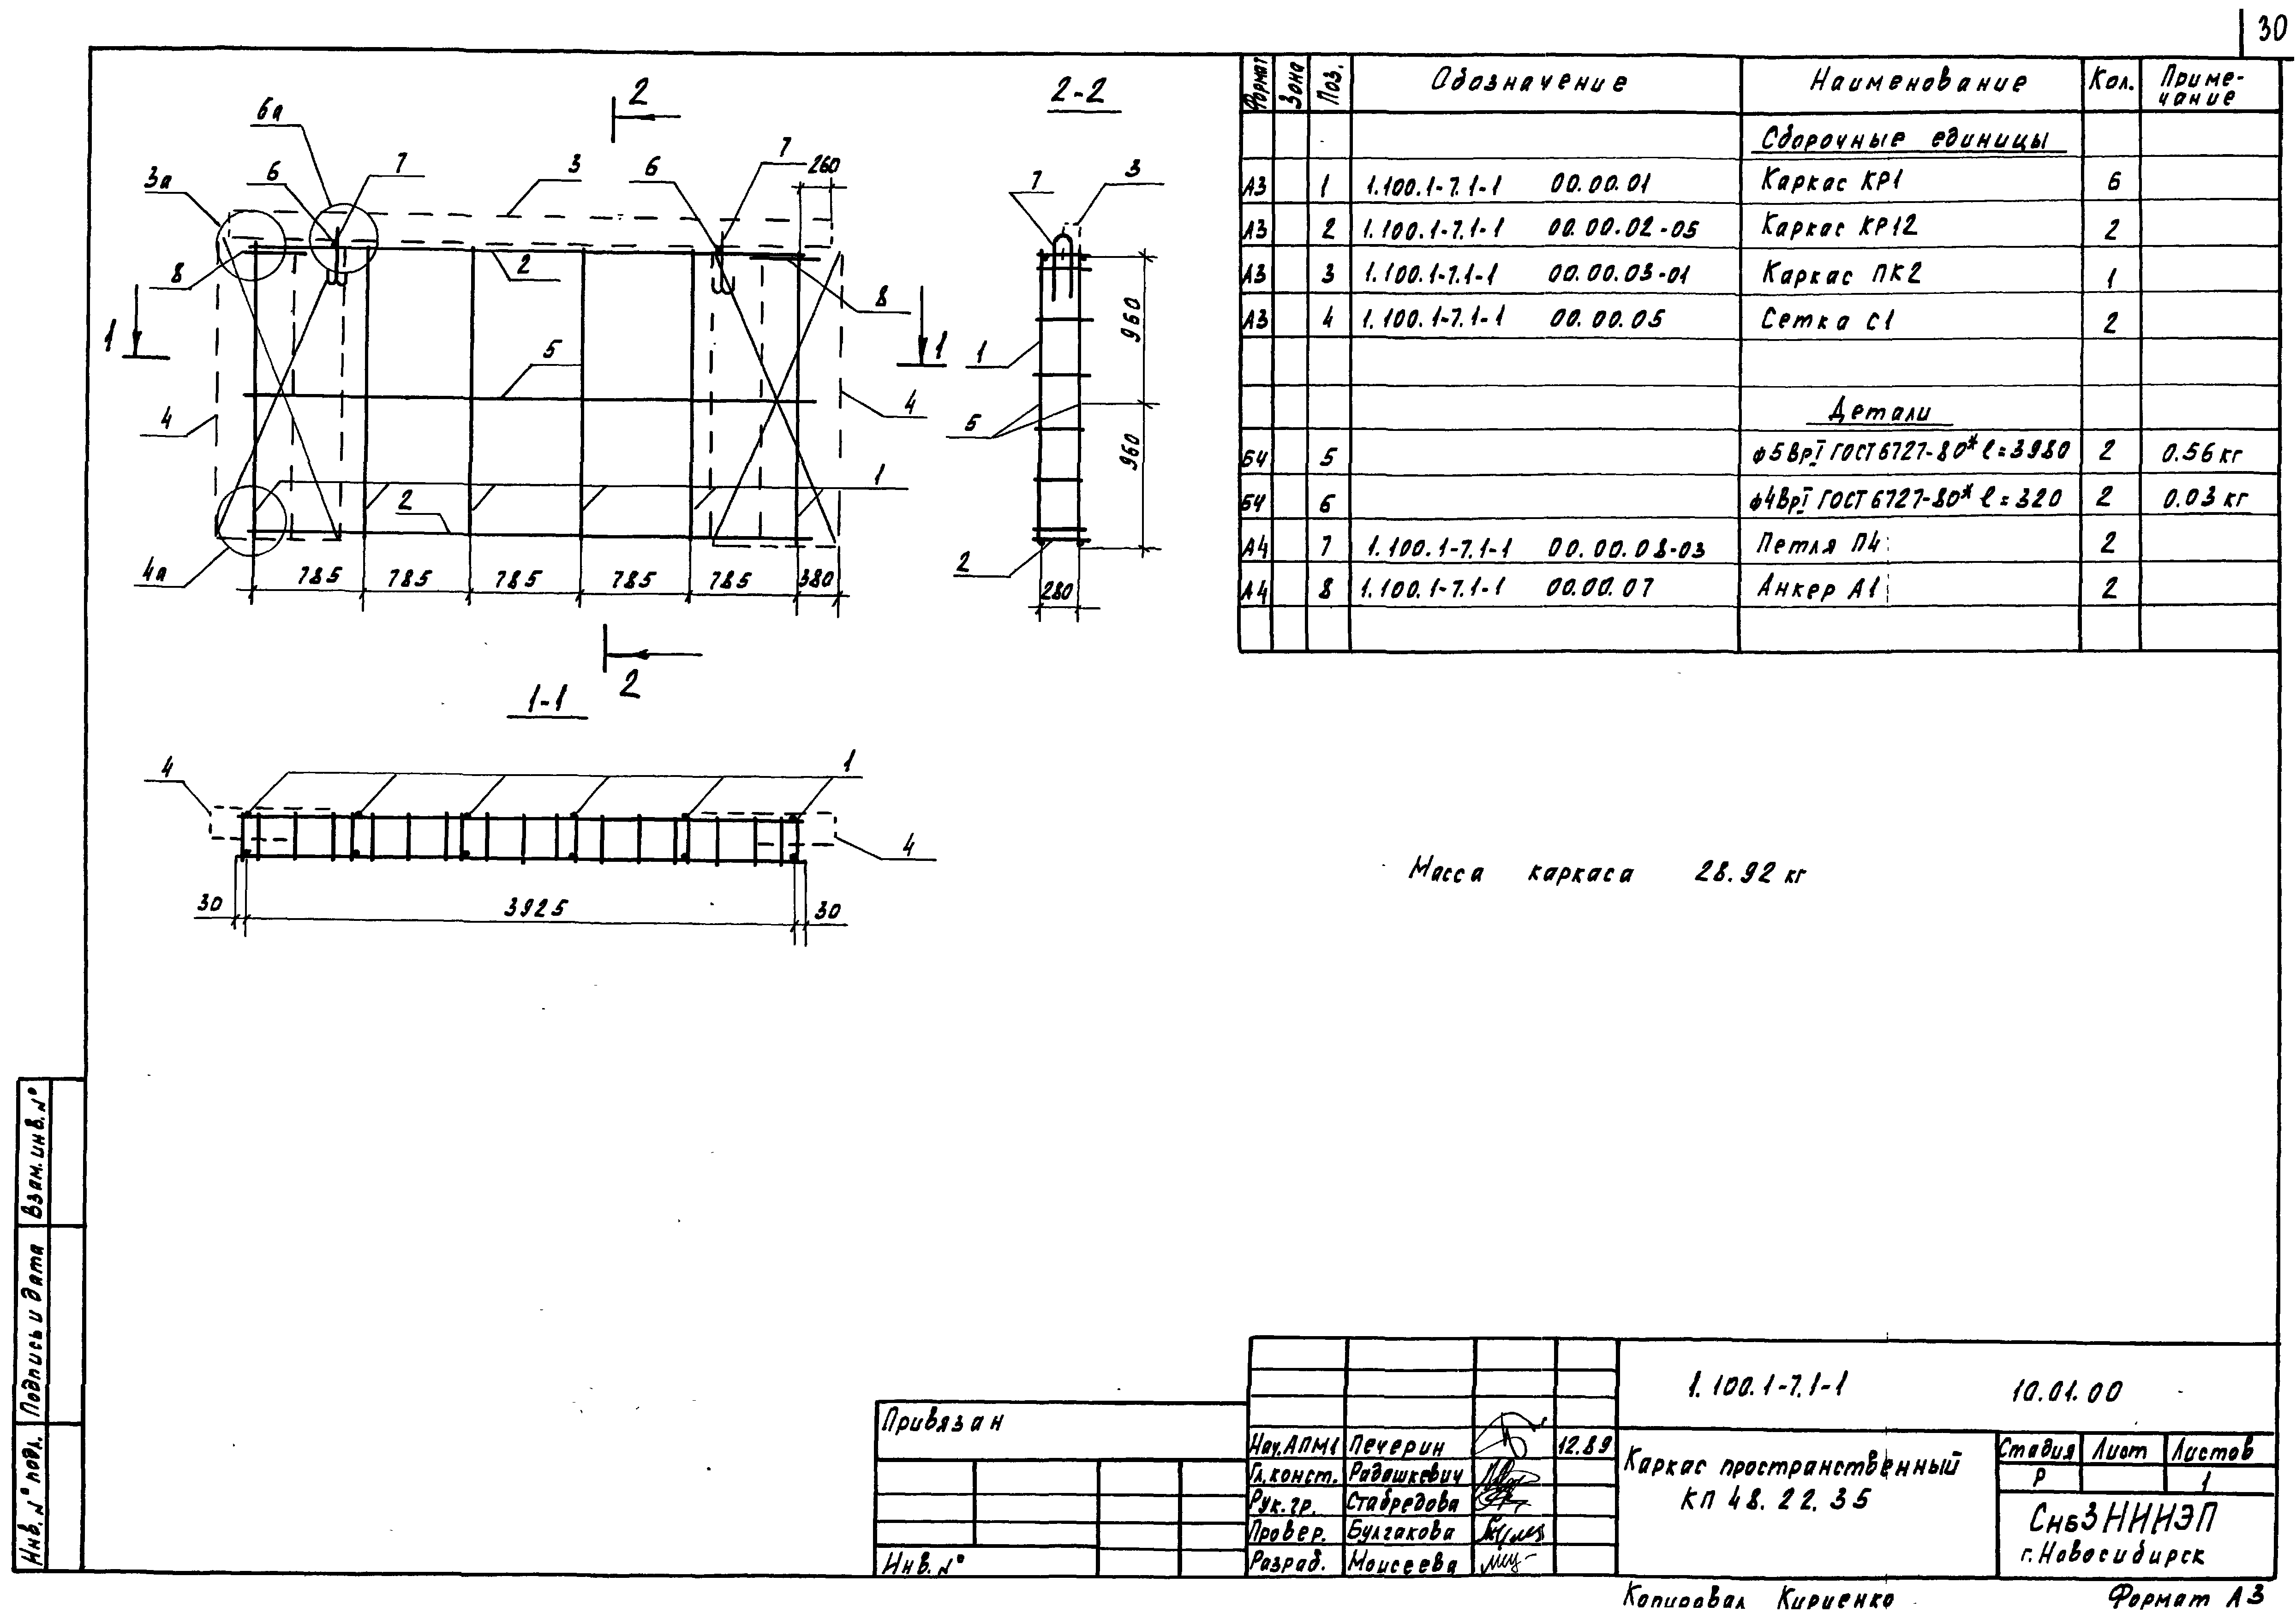 30
2
2-2
6а
7
3а
6
7
3
6
260
7
3
8
2
8
1
1
5
4
4
1
5
960
960
2
1
4а
785
785
785
785
785
380
2
280
2
1-1
4
1
4
30
3925
30
Формат Зона Поз. Обозначение Наименование Кол. Приме-
чание
Сборочные единицы
А3 1 1.100.1-7.1-1 00.00.01 Каркас КР1 6
А3 2 1.100.1-7.1-1 00.00.02-05 Каркас КР12 2
А3 3 1.100.1-7.1-1 00.00.03-01 Каркас ПК2 1
А3 4 1.100.1-7.1-1 00.00.05 Сетка С1 2
Детали
Б4 5 φ5ВрI ГОСТ 6727-80* ℓ=3980 2 0.56 кг
Б4 6 φ4ВрI ГОСТ 6727-80* ℓ=320 2 0.03 кг
А4 7 1.100.1-7.1-1 00.00.08-03 Петля П4 2
А4 8 1.100.1-7.1-1 00.00.07 Анкер А1 2
Масса каркаса 28.92 кг
Взам. инв. №
Подпись и дата
Инв. № подл.
Привязан
Инв. №
1.100.1-7.1-1 10.01.00
Нач. АПМ1 Печерин 12.89
Гл. конст. Радашкевич
Рук. гр. Стабредова
Провер. Булгакова
Разраб. Моисеева
Каркас пространственный
КП 48.22.35
Стадия Лист Листов
Р 1
СибЗНИИЭП
г. Новосибирск
Копировал Кириенко Формат А3